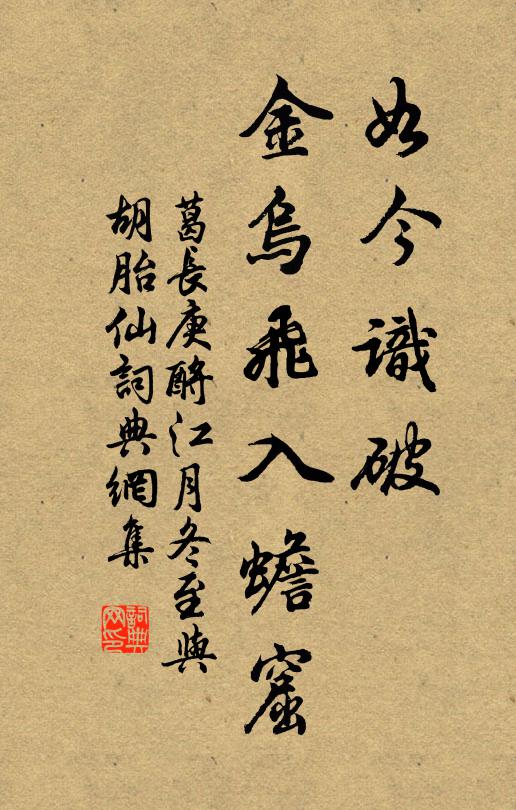 如今識破
金烏飛入蟾窟
葛長庚酹江月冬至與
胡胎仙詞典網集
詞典
網印